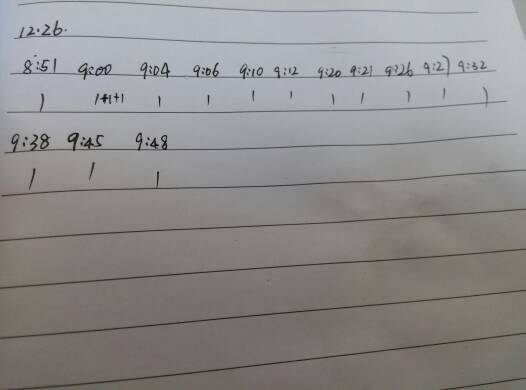 12.26.
8:51 9:00 9:04 9:06 9:10 9:12 9:20 9:21 9:26 9:27 9:32
1 1+1+1 1 1 1 1 1 1 1 1 1
9:38 9:45 9:48
1 1 1